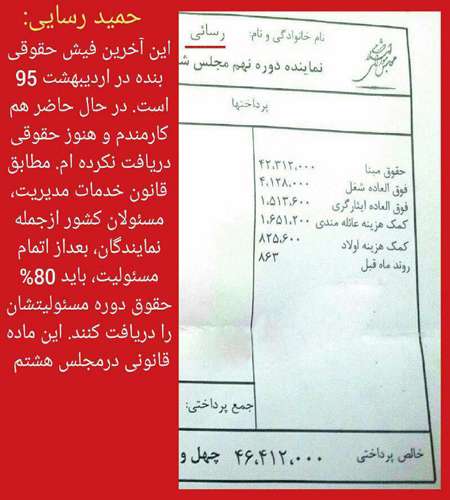 حمید رسایی:
این آخرین فیش حقوقی
بنده در اردیبهشت 95
است. در حال حاضر هم
کارمندم و هنوز حقوقی
دریافت نکرده ام. مطابق
قانون خدمات مدیریت،
مسئولان کشور ازجمله
نمایندگان، بعداز اتمام
مسئولیت، باید 80%
حقوق دوره مسئولیتشان
را دریافت کنند. این ماده
قانونی درمجلس هشتم
نام خانوادگی و نام: رسائی
نماینده دوره نهم مجلس
پرداختها
حقوق مبنا ۴۲,۳۱۲,۰۰۰
فوق العاده شغل ۴,۱۲۸,۰۰۰
فوق العاده ایثارگری ۱,۵۱۳,۶۰۰
کمک هزینه عائله مندی ۱,۶۵۱,۲۰۰
کمک هزینه اولاد ۸۲۵,۶۰۰
روند ماه قبل ۸۶۳
جمع پرداختی:
خالص پرداختی ۴۶,۴۱۲,۰۰۰ چهل و